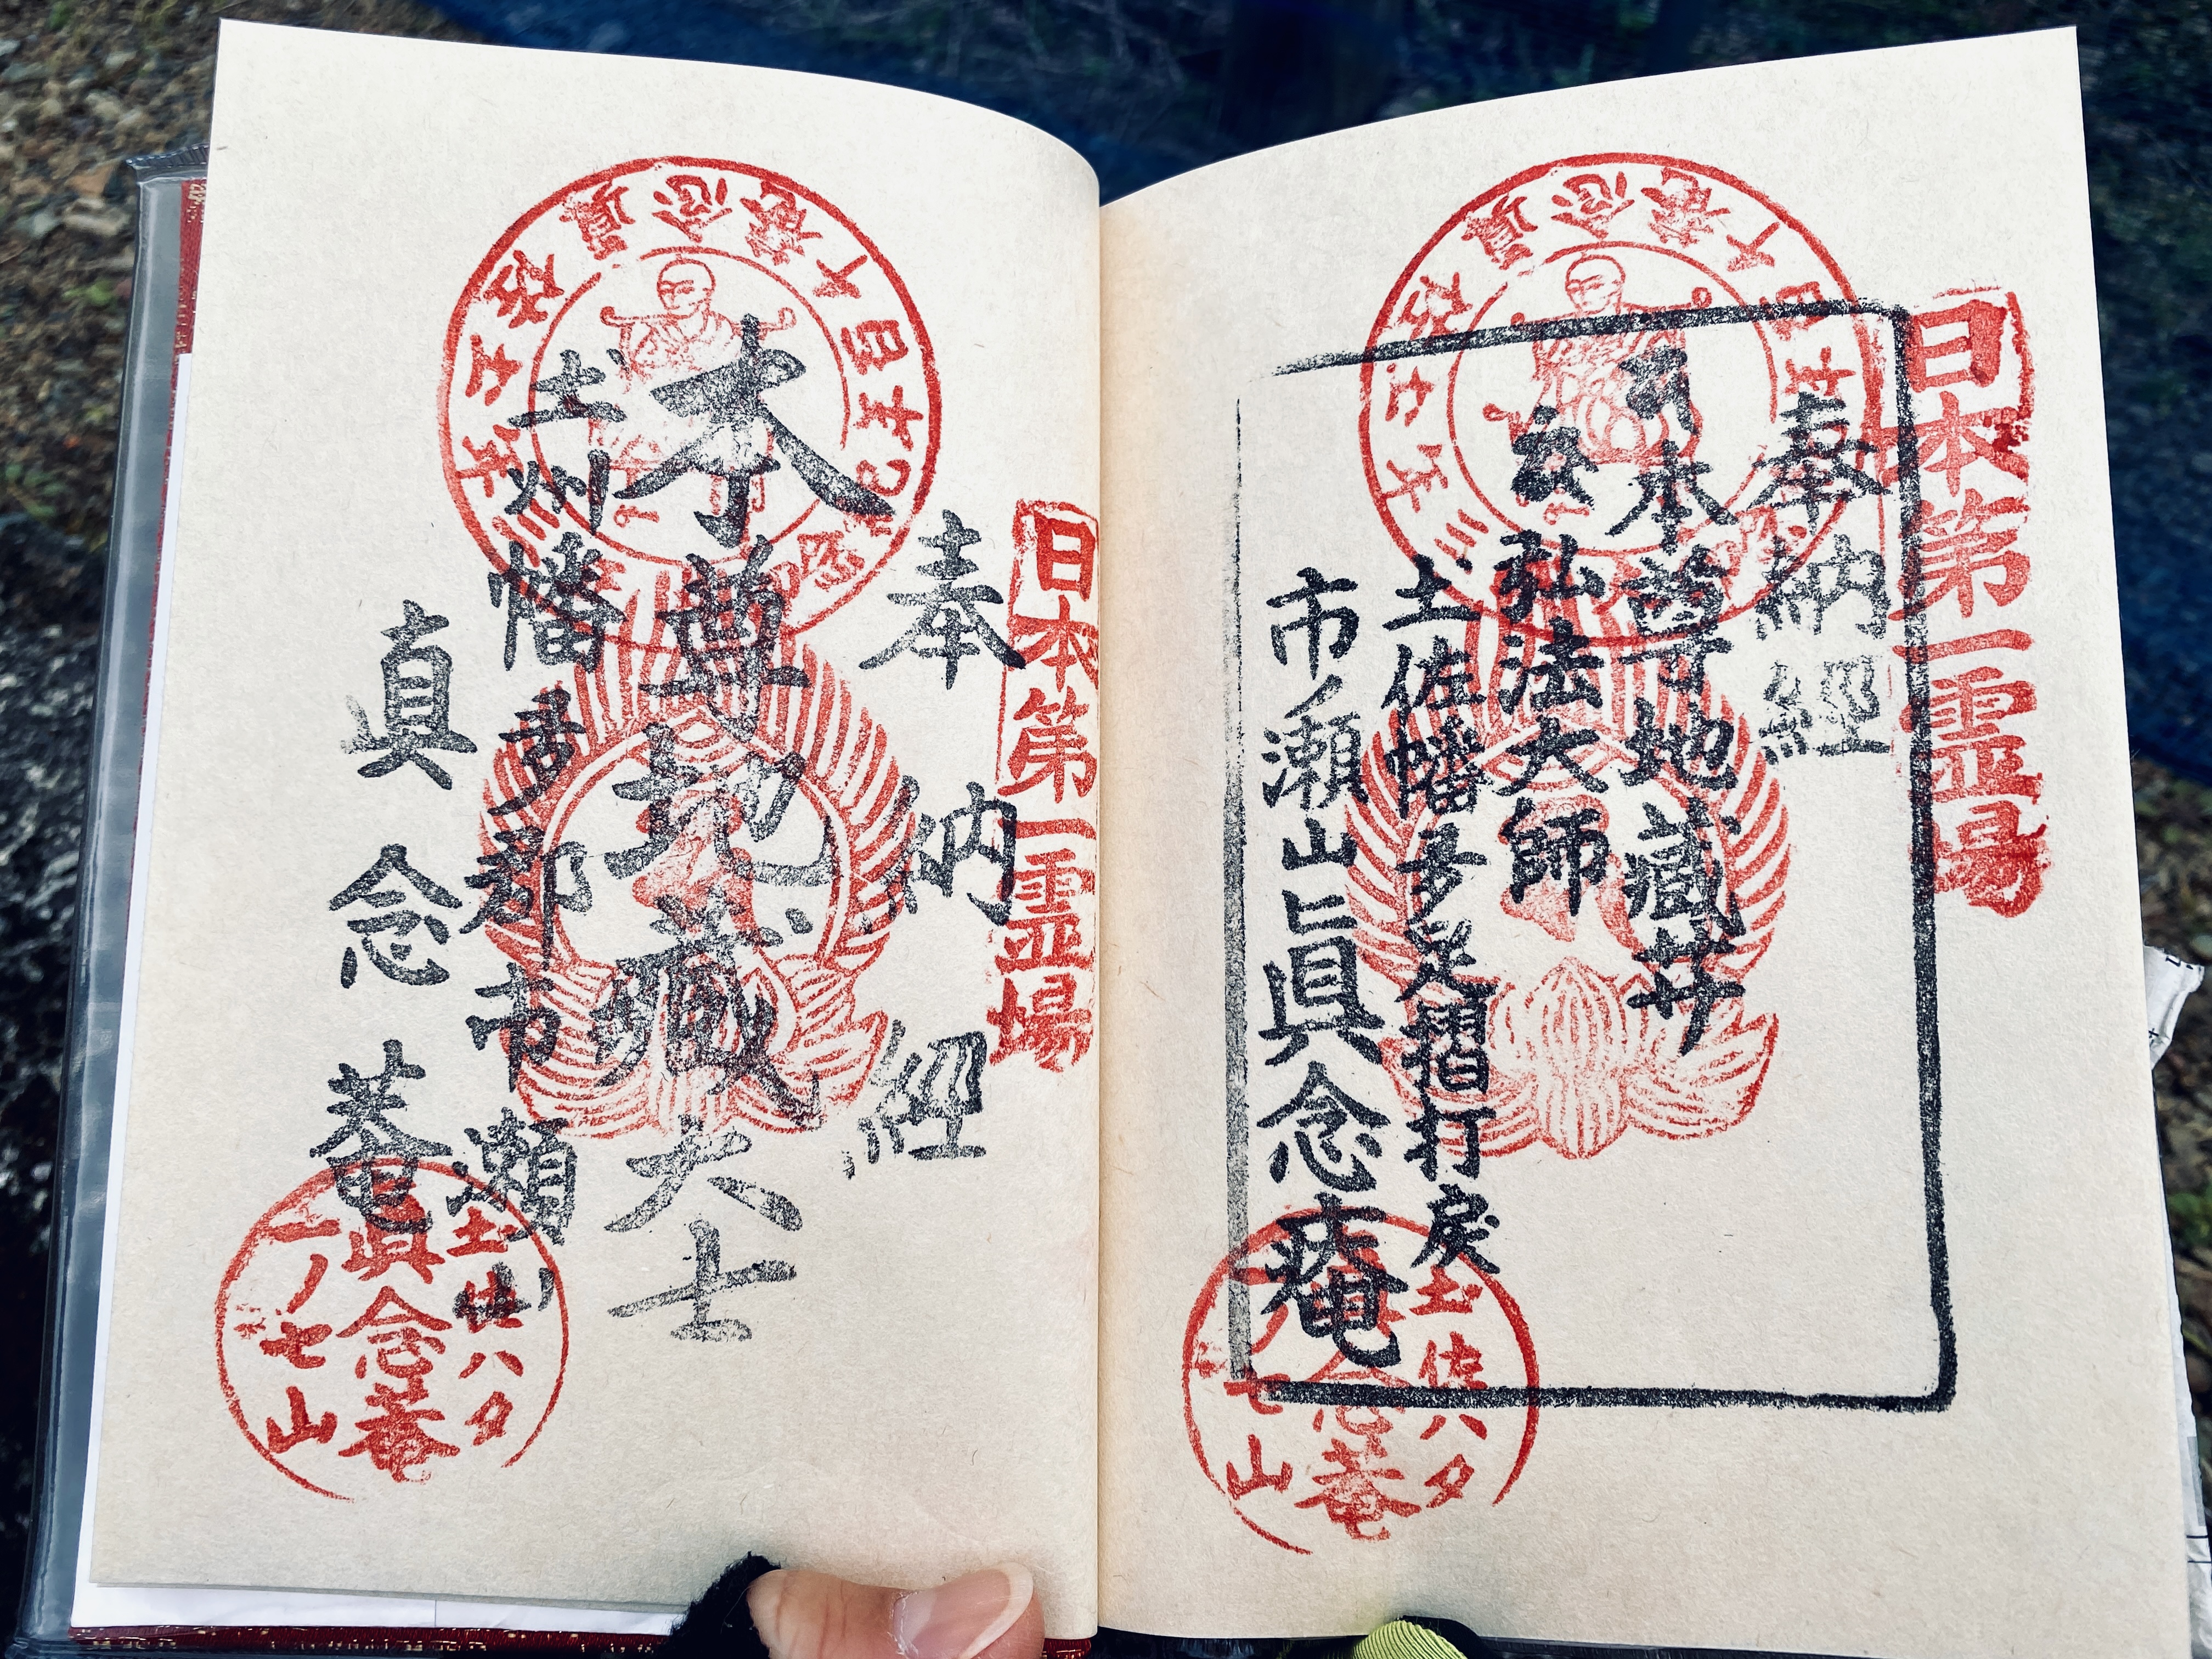 日本第一霊場
奉納經
本尊地藏井
弘法大師
土佐幡多足摺打戻
市ノ瀬山眞念庵
土佐ハタ
念菴
七山
日本第一霊場
奉納經
本尊地藏大士
土州幡多郡市瀬山
真念菴
土佐ハタ
眞念菴
一ノ七山